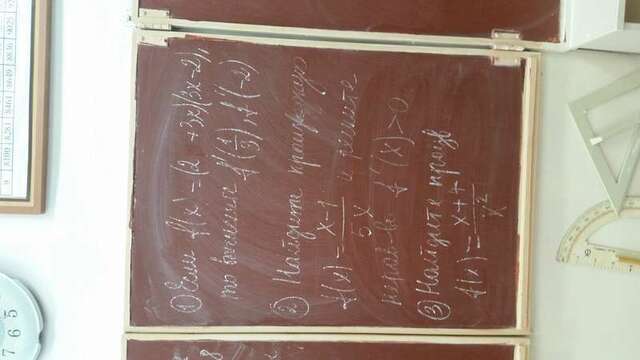 7 6 5
9 8100 8281 8461 8649 8836 9025
① Если f(x) = (2 +3x)(3x-2),
то вычислим f'(1/3), f'(-2)
② Найдите производную
f(x) = x-1/5x и решите
нерав-во f'(x)>0
③ Найдите произв
f(x) = x+4/x²
8